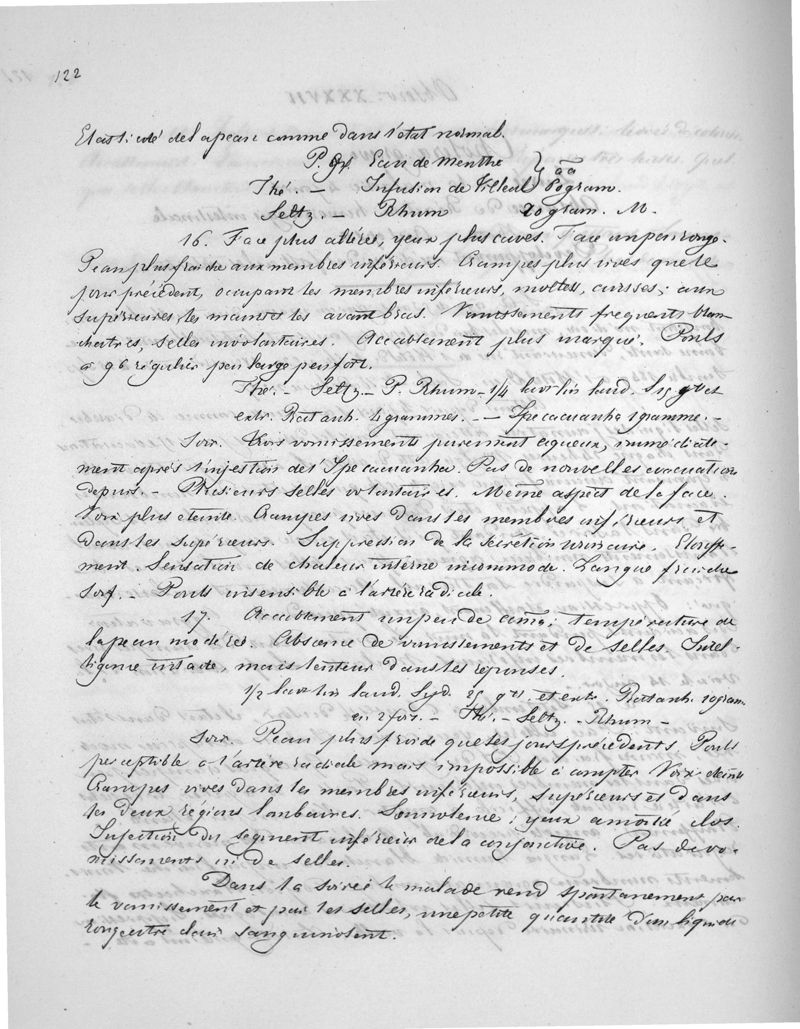 122
Elasticité de la peau comme dans l'état normal.
P. Gr. Eau de Menthe
Thé. — Infusion de Tilleul } aa 60 gram.
Seltz. — Rhum 20 gram. M.
16. Face plus altérée, yeux plus caves. Face un peu rouge.
Peau plus fraiche aux membres inférieurs. Crampes plus vives que le
jour précédent, occupant les membres inférieurs, mollets, cuisses; aux
supérieures les mains et les avant bras. Vomissements frequents blan-
chatres, selles involontaires. Accablement plus marqué. Pouls
à 96 régulier peu large peu fort.
Thé. — Seltz — P. Rhum — 1/4 lav. lin laud. Sy gtt et
extr. Ratanh. 4 grammes. — Ipecacuanha 1 gramme. —
Soir. Trois vomissements purement aqueux, immédiate-
ment après l'injestion de l'Ipecacuanha. Pas de nouvelles evacuations
depuis. — Plusieurs selles volontaires. Même aspect de la face.
Voix plus eteinte. Crampes vives dans les membres inférieurs et
dans les supérieurs. Suppression de la secrétion urinaire. Etouffe-
ment. Sensation de chaleur interne incommode. Langue fraiche
Soif. — Pouls insensible à l'artère radiale.
17. Accablement un peu de coma; température de
la peau modérée. Absence de vomissements et de selles. Intel-
ligence intacte, mais lenteur dans les réponses.
1/2 lav. lin laud. Syd. 25 gtt. et extr. Ratanh. 10 gram.
en 2 fois. — Thé. — Seltz. — Rhum —
Soir. Peau plus froide que les jours précédents. Pouls
perceptible à l'artère radiale mais impossible à compter. Voix eteinte
Crampes vives dans les membres inférieurs, supérieurs et dans
les deux régions lombaires. Somnolence; yeux à moitié clos.
Injection du segment inférieur de la conjonctive. Pas de vo-
missements ni de selles.
Dans la soirée le malade rend spontanement par
le vomissement et par les selles, une petite quantité d'un liquide
rougeatre clair sanguinolent.